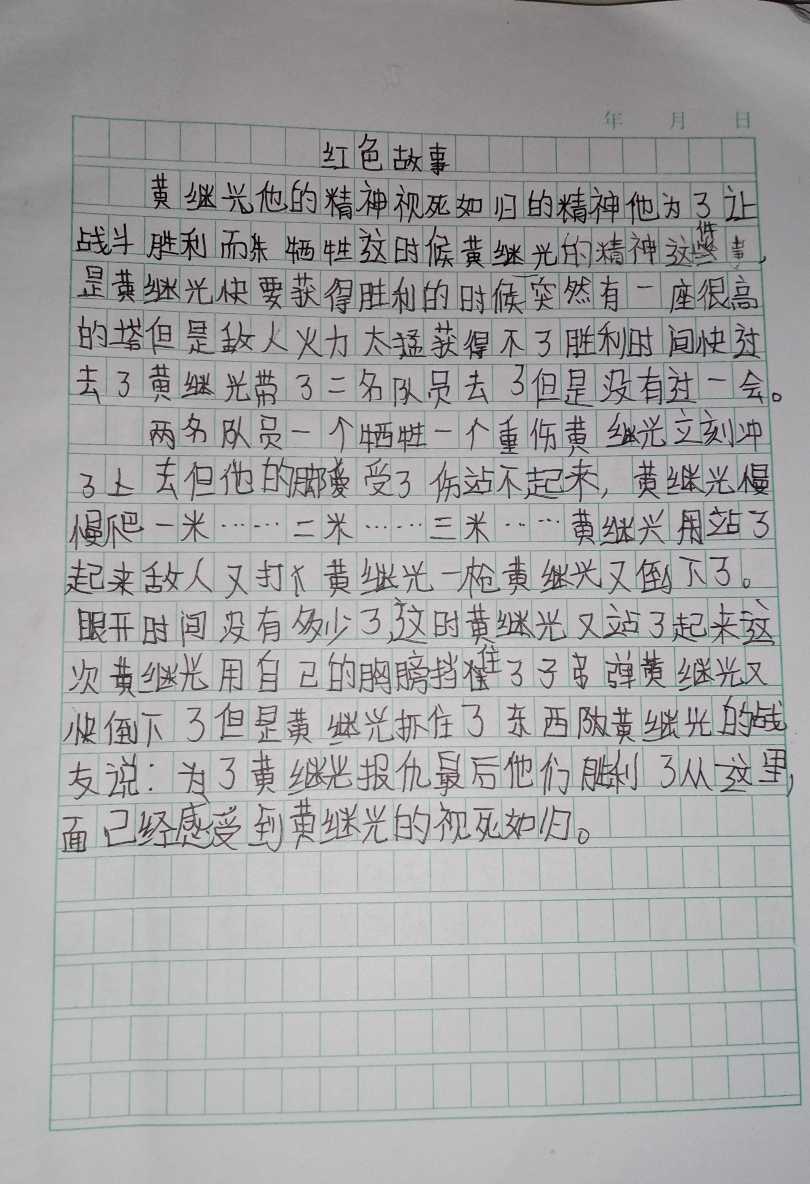 年 月 日
红色故事
黄继光他的精神视死如归的精神他为了让
战斗胜利而牺牲这时候黄继光的精神这件事,
是黄继光快要获得胜利的时候突然有一座很高
的塔但是敌人火力太猛获得不了胜利时间快过
去了黄继光带了二名队员去了但是没有过一会。
两名队员一个牺牲一个重伤黄继光立刻冲
了上去但他的脚受了伤站不起来,黄继光慢
慢爬一米……二米……三米……黄继光用站了
起来敌人又打黄继光一枪黄继光又倒下了。
眼开时间没有多少了,这时黄继光又站了起来这
次黄继光用自己的胸膀挡住了子弹黄继光又
快倒下了但是黄继光抓住了东西黄继光的战
友说:为了黄继光报仇最后他们胜利了从这里,
面已经感受到黄继光的视死如归。